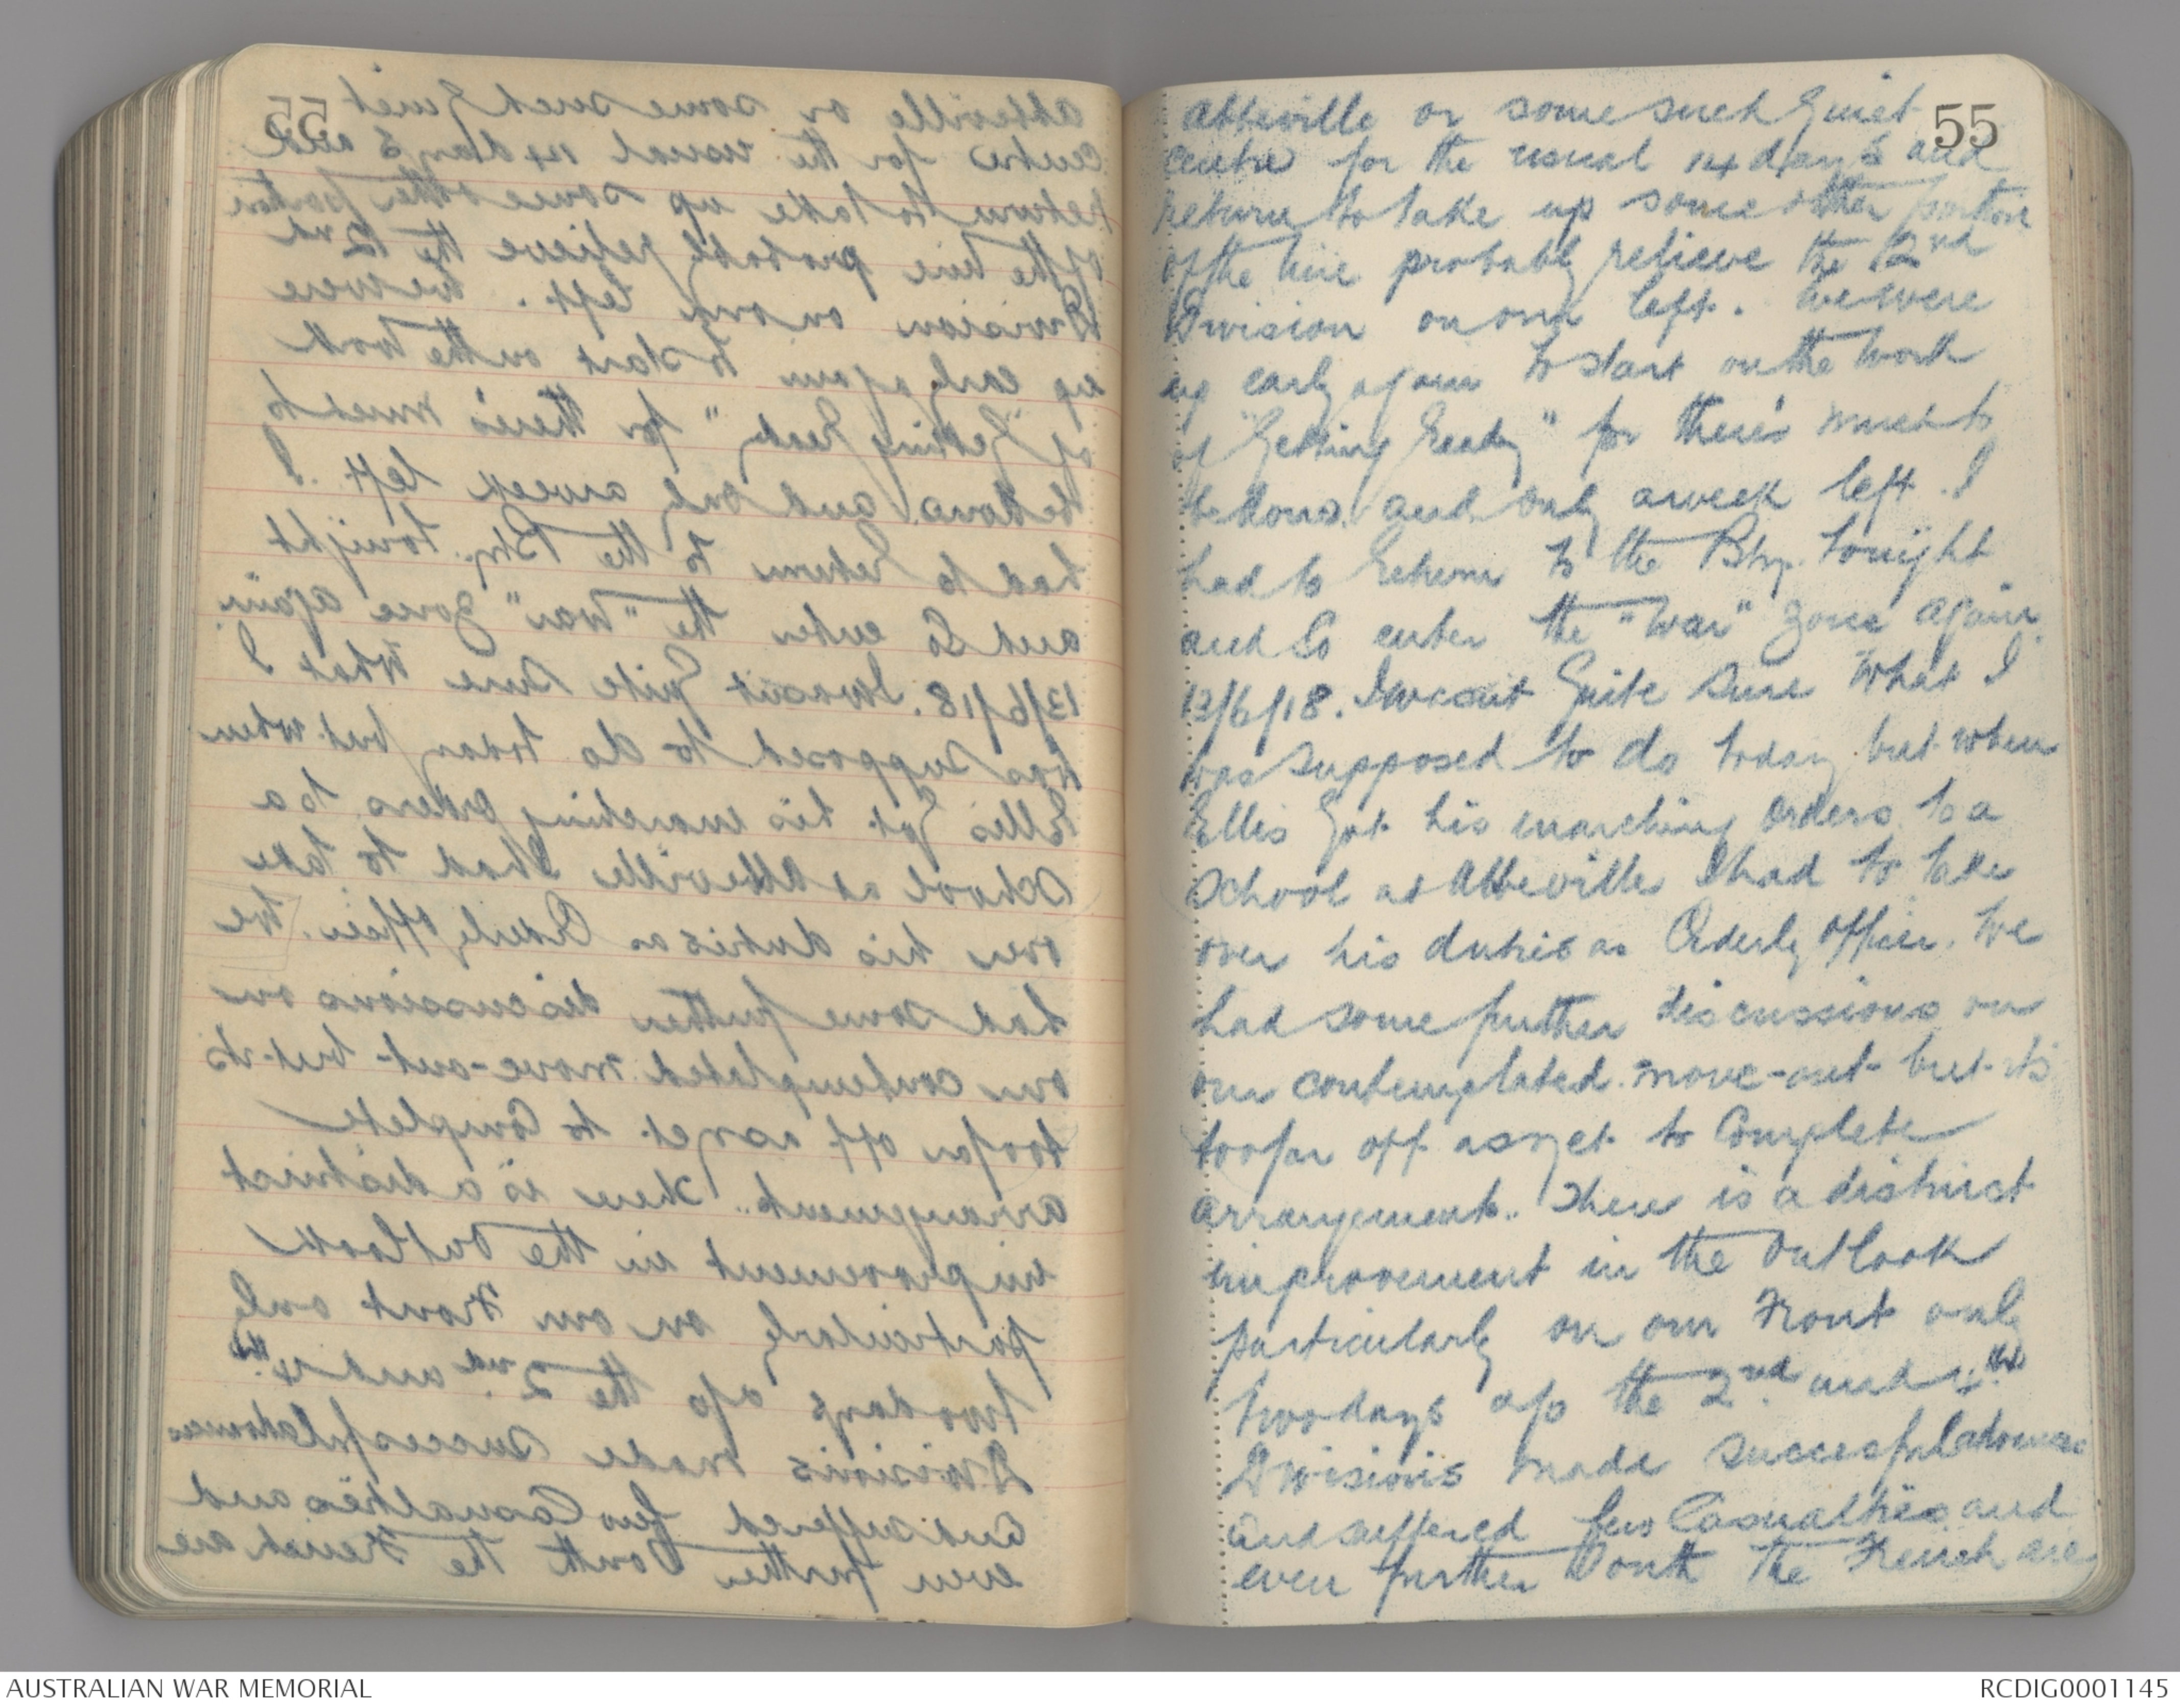 55
Abbeville or some such quiet
centre for the usual 14 days and
return to take up some other portion
of the line probably relieve the 2nd
Division on our left. We were
up early again to start on the work
of "Getting Ready" for there's much to
be done and only a week left. I
had to return to the Bty. tonight
and so enter the "War" zone again.
13/6/18. I wasnt quite sure what I
was supposed to do today but when
Ellis got his marching orders to a
School at Abbeville I had to take
over his duties as Orderly Officer. We
had some further discussions on
our contemplated move-out but its
too far off as yet to complete
arrangements. There is a distinct
improvement in the outlook
particularly on our Front only
two days ago the 2nd and 4th
Divisions made succesful advances
and suffered few casualties and
even further South the French are
AUSTRALIAN WAR MEMORIAL
RCDIG0001145